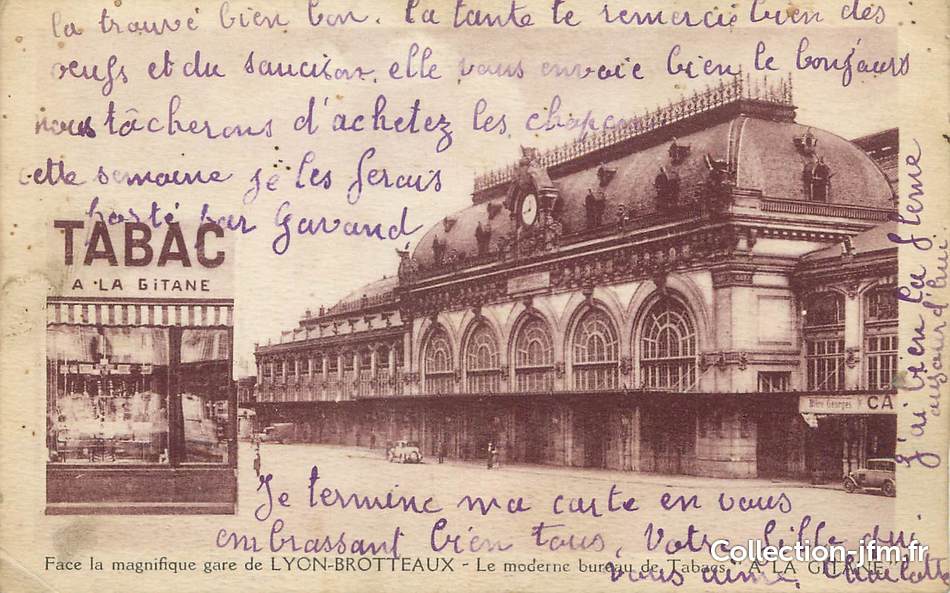 la trouvé bien bon. La tante te remercie bien des
oeufs et du saucison, elle vous envoie bien le bonjours
nous tâcherons d'achetez les
cette semaine je les ferais
porté par Gavand
TABAC
A LA GITANE
Bière Georges CA
J'ai bien la
aujourd'hui
Je termine ma carte en vous
embrassant bien tous, Votre fille qui
vous aime. Charlotte
Collection-jfm.fr
Face la magnifique gare de LYON-BROTTEAUX - Le moderne bureau de Tabacs "A LA GITANE"